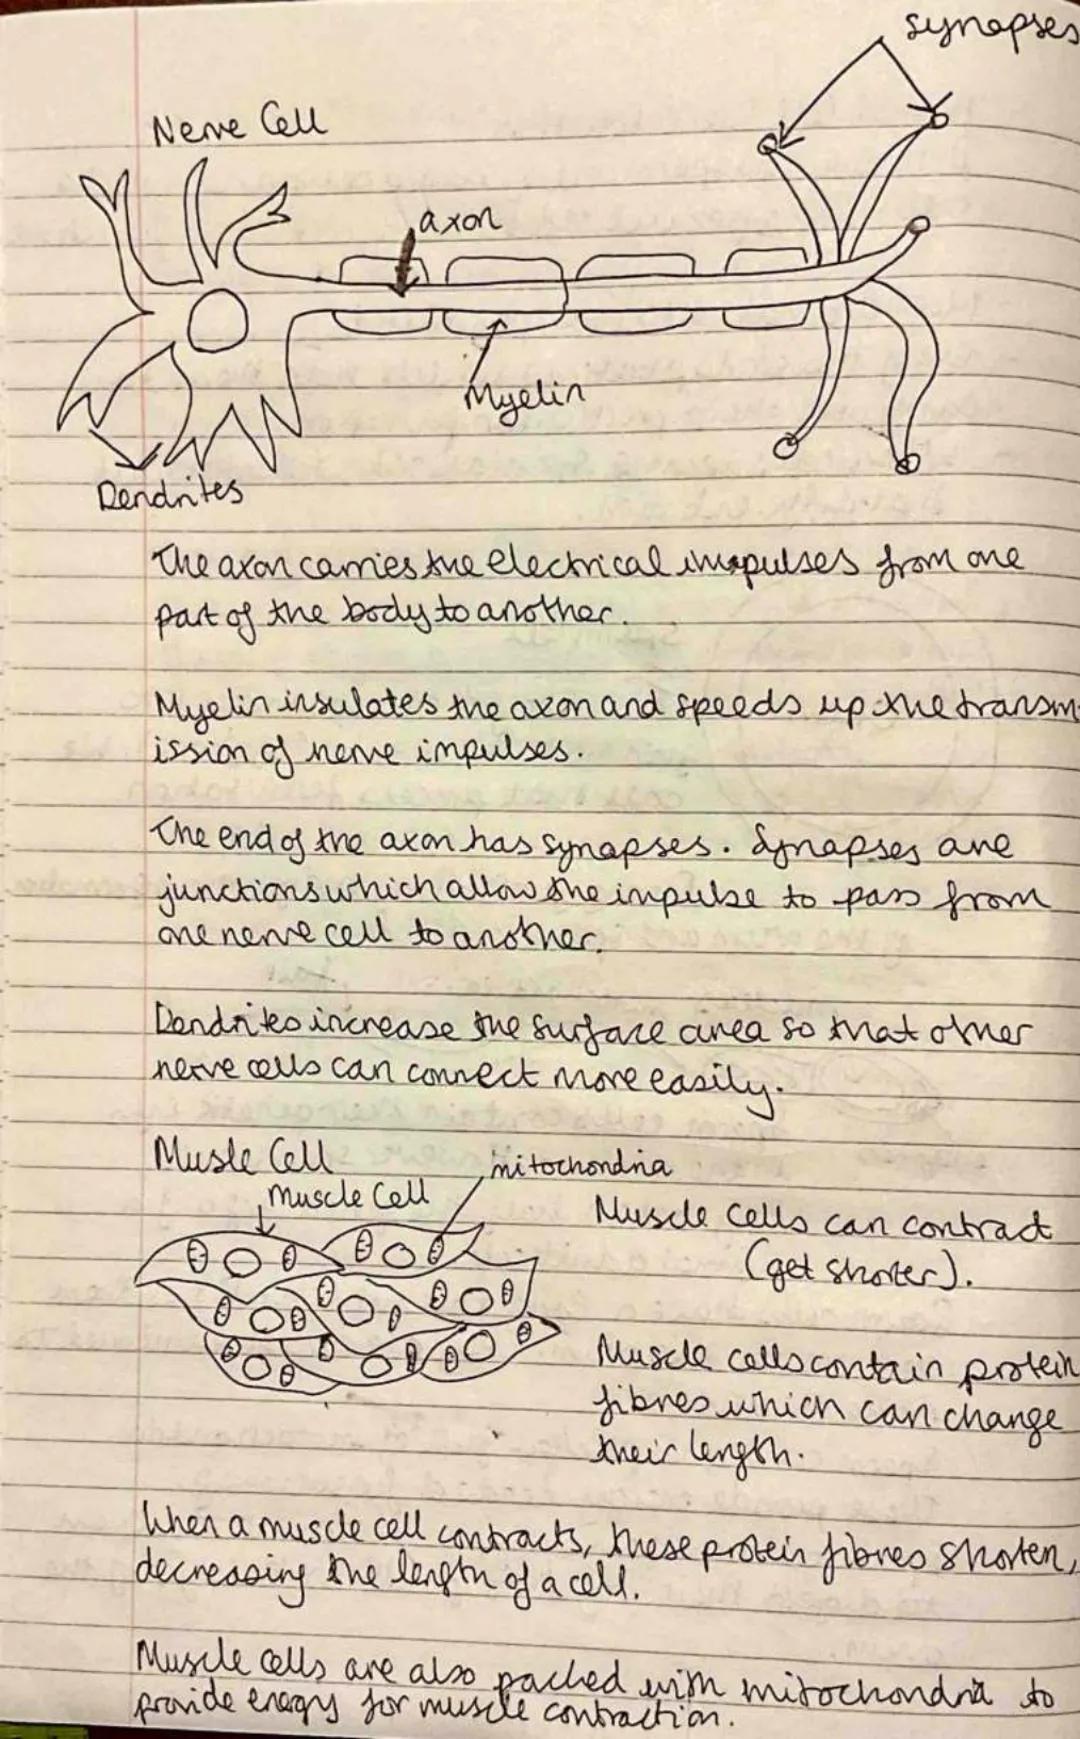 synapses
Nerve Cell
axon
Myelin
Dendrites
The axon carries the electrical impulses from one
part of the body to another.
Myelin insulates the axon and speeds up the transm-
ission of nerve impulses.
The end of the axon has synapses. Synapses are
junctions which allow the impulse to pass from
one nerve cell to another.
Dendrites increase the surface area so that other
nerve cells can connect more easily.
Musle Cell
mitochondria
muscle Cell
Muscle Cells can contract
(get shorter).
Muscle cells contain protein
fibres which can change
their length.
When a muscle cell contracts, these protein fibres shorten,
decreasing the length of a cell.
Muscle cells are also packed with mitochondria to
provide energy for muscle contraction.